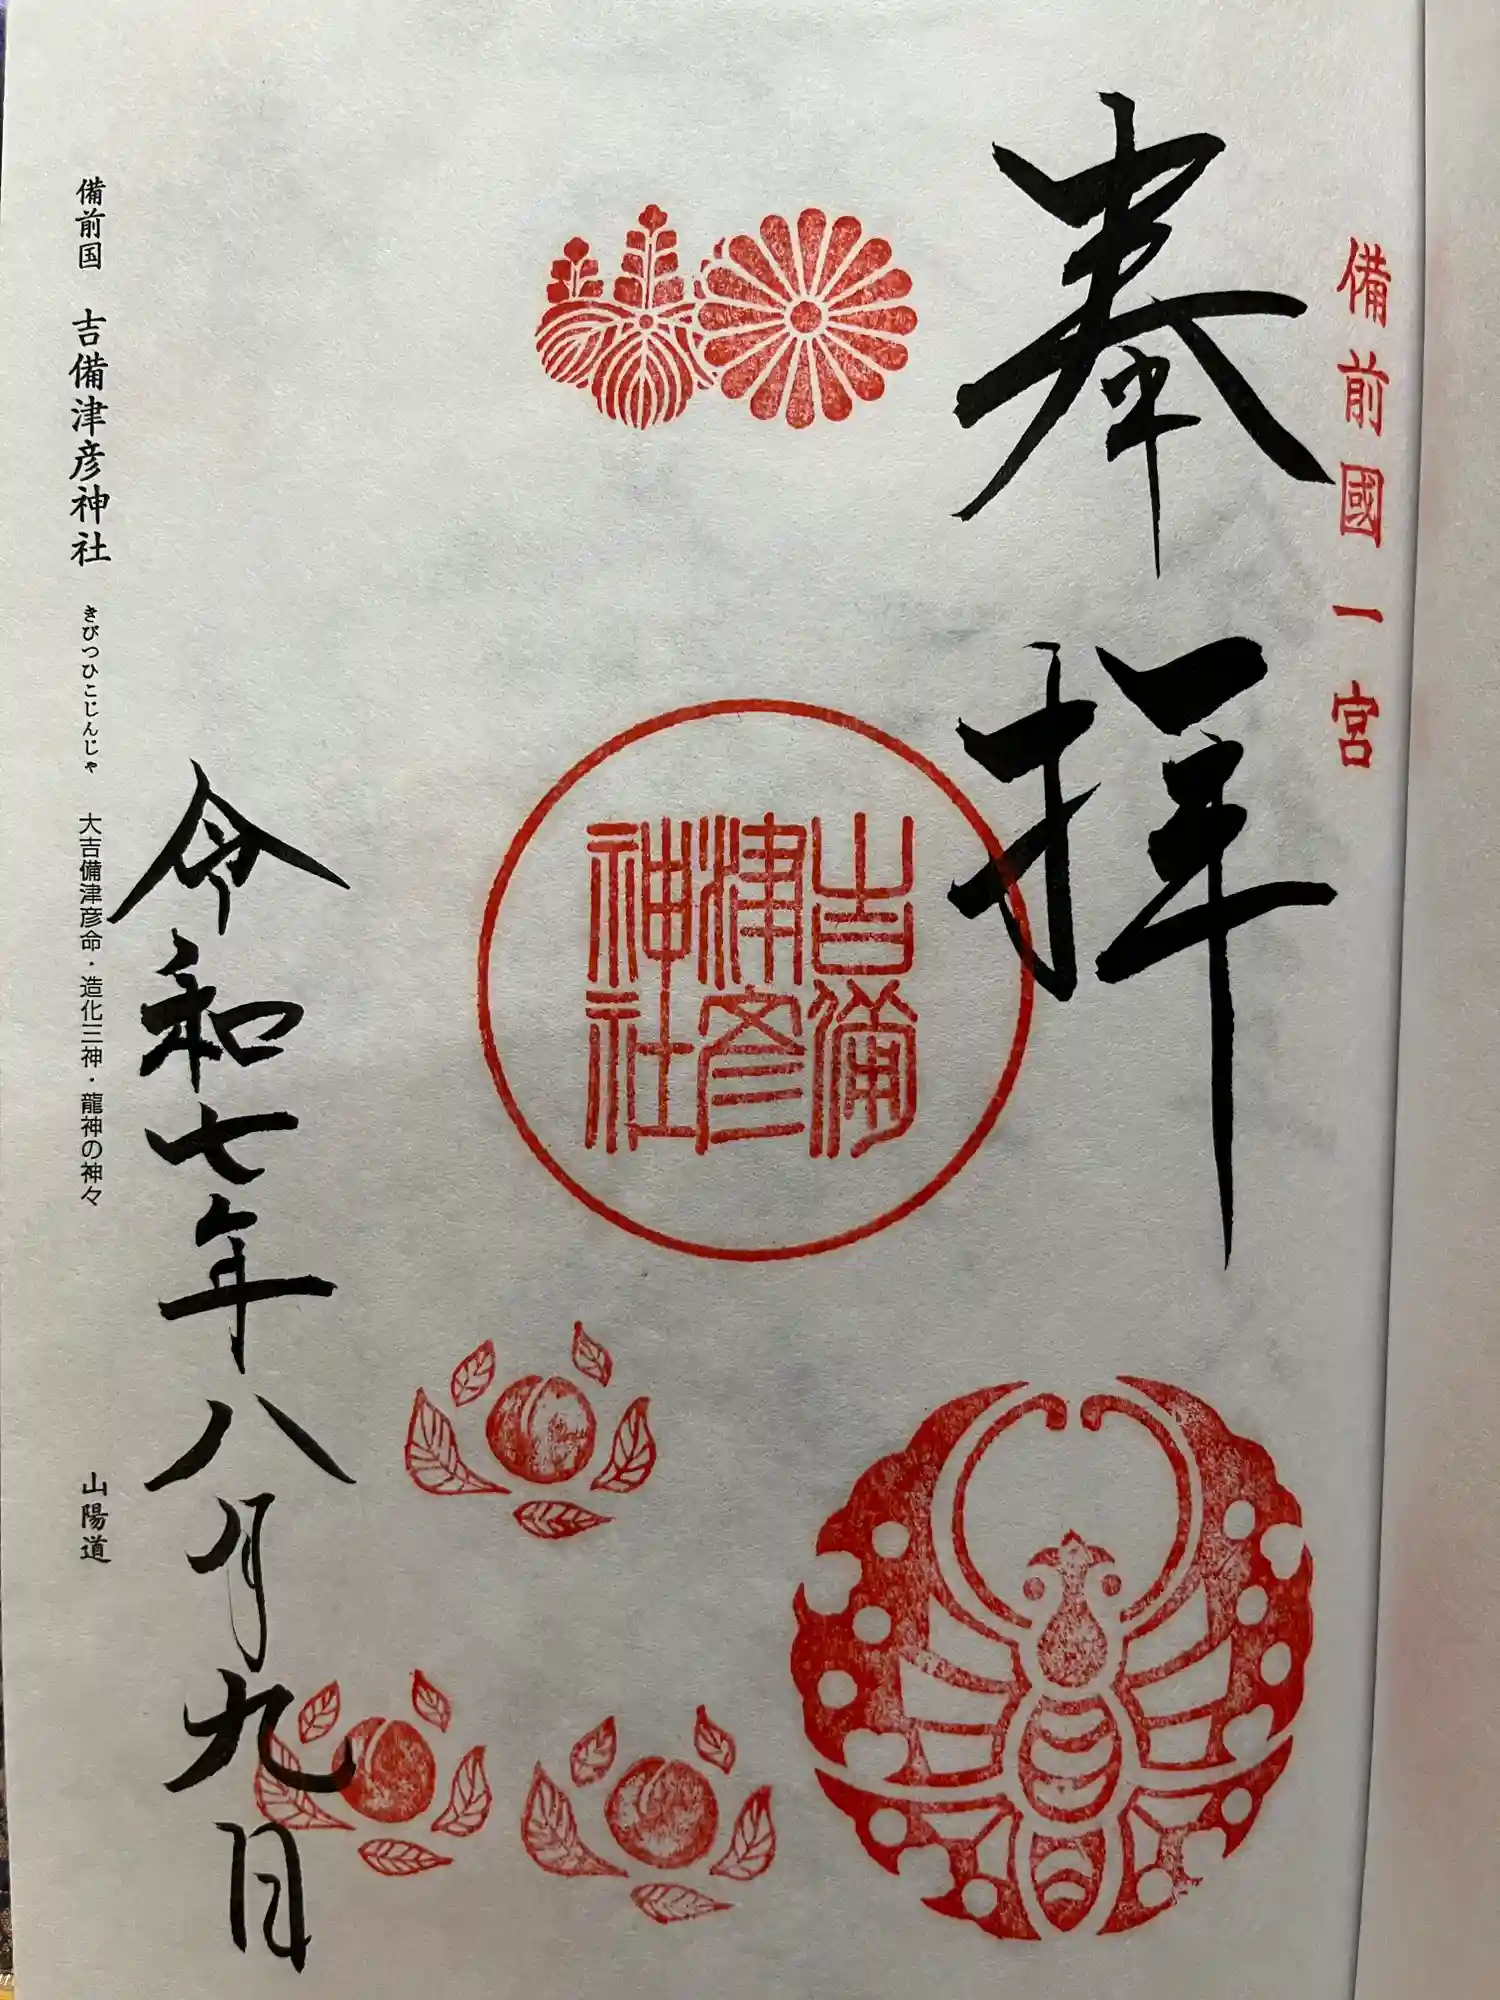 備前國一宮
奉拝
吉備
津彦
神社
令和七年八月九日
備前国 吉備津彦神社 きびつひこじんじゃ 大吉備津彦命・造化三神・龍神の神々 山陽道